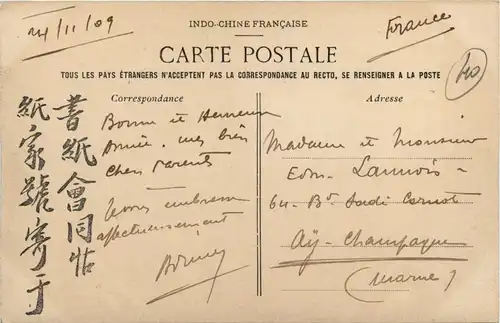 24/11/09
INDO-CHINE FRANÇAISE
France
CARTE POSTALE
TOUS LES PAYS ÉTRANGERS N'ACCEPTENT PAS LA CORRESPONDANCE AU RECTO, SE RENSEIGNER A LA POSTE
40
Correspondance
Bonne et Heureuse
Année, mes bien
chers Parents
Vous embrasse
affectueusement
書紙會同
紙家號寄于
Adresse
Madame et Monsieur
Edm. Lannois
64 - Bd Sadi Carnot
Aÿ - Champagne
(Marne)